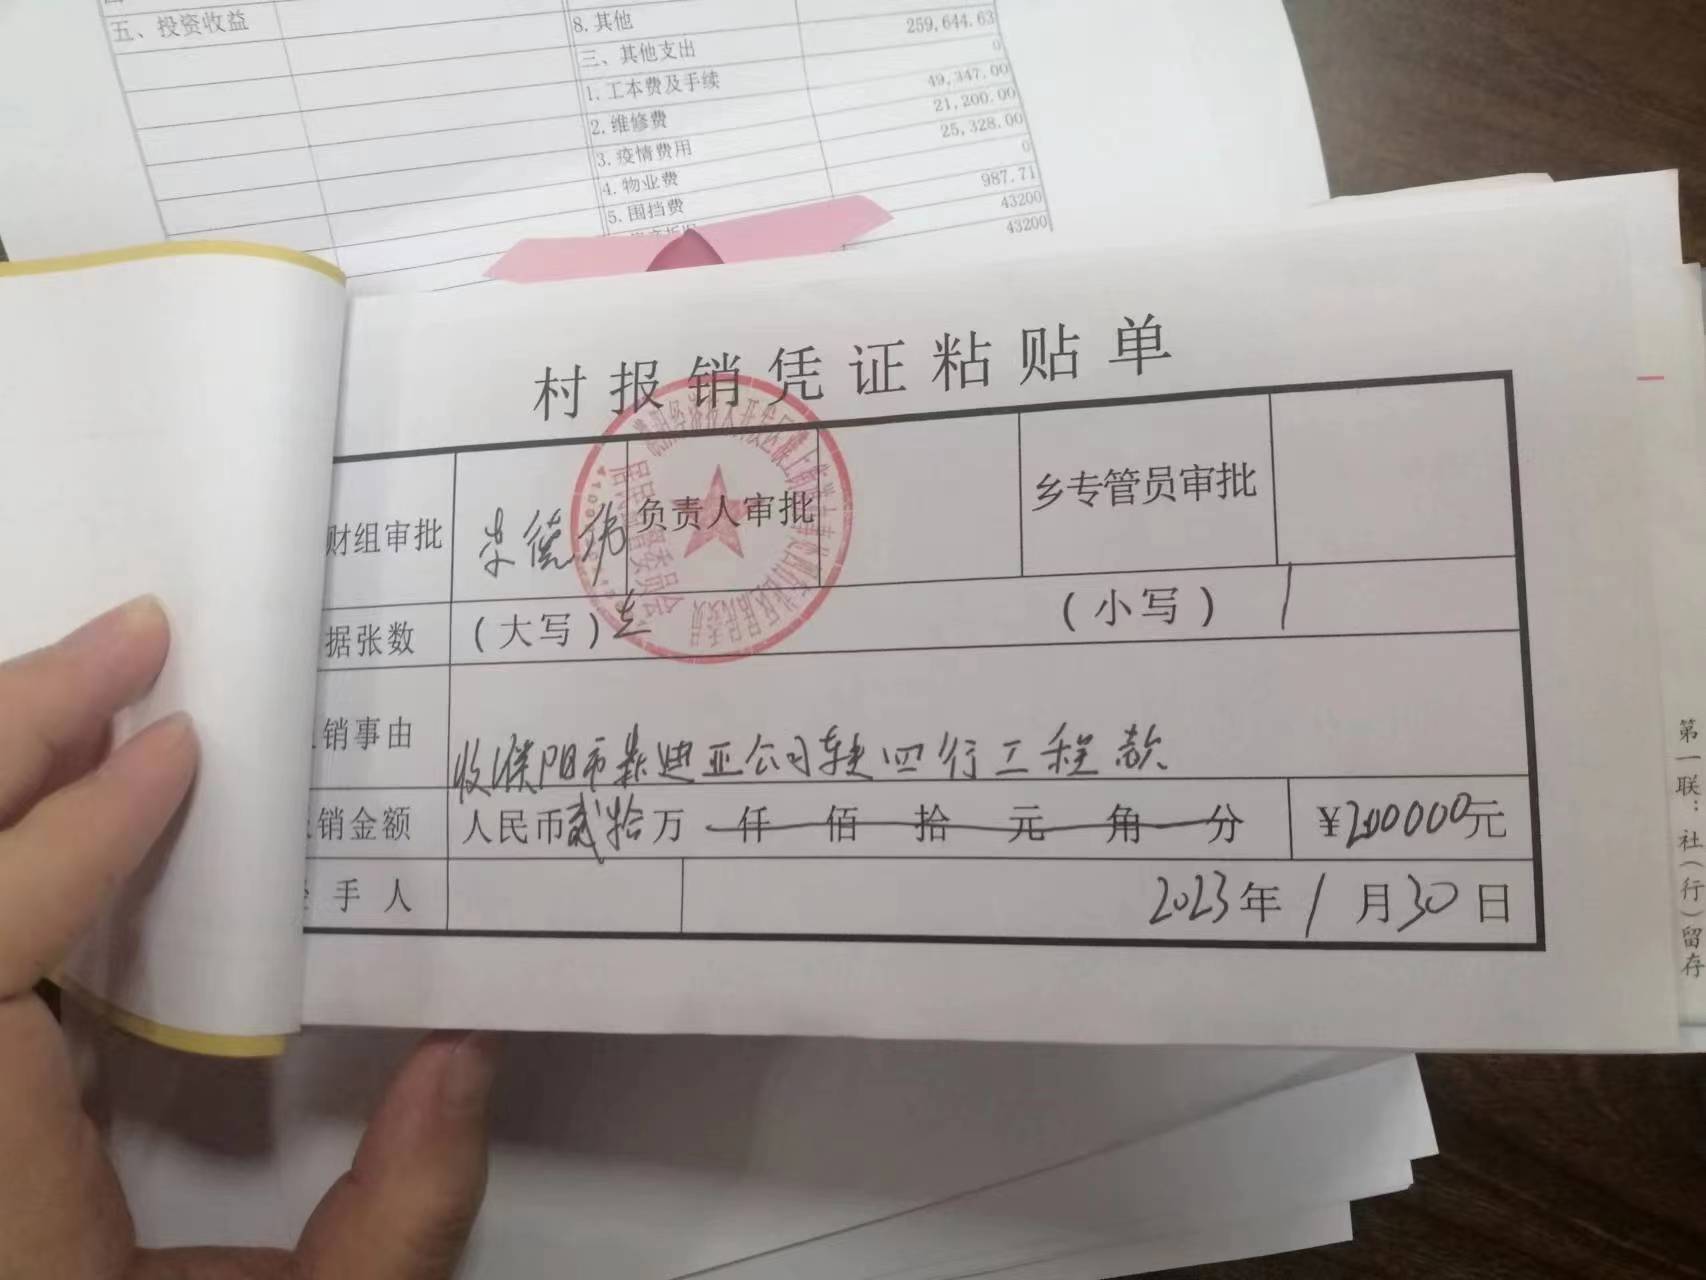 五、投资收益
8.其他 259,644.63
三、其他支出 0
1.工本费及手续 49,347.00
2.维修费 21,200.00
3.疫情费用 25,328.00
4.物业费 0
5.围挡费 987.71
43200
43200
村报销凭证粘贴单
财组审批 德 负责人审批 乡专管员审批
居民监督委员会
据张数 (大写) (小写) 1
销事由 收濮阳市 迪亚公司 四行工程款
销金额 人民币贰拾万 仟 佰 拾 元 角 分 ¥200000元
手人 2023年1月30日
第一联：社(行)留存